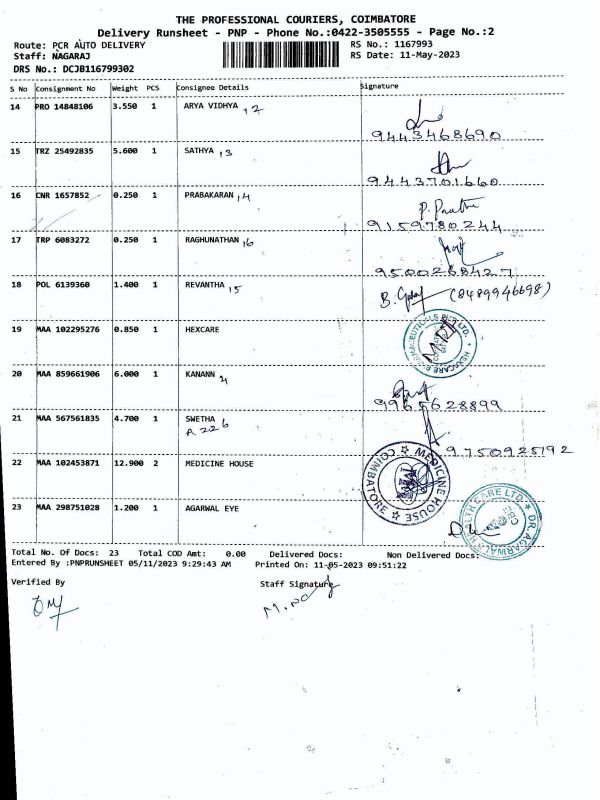 THE PROFESSIONAL COURIERS, COIMBATORE
Delivery Runsheet - PNP - Phone No.:0422-3505555 - Page No.:2
Route: PCR AUTO DELIVERY RS No.: 1167993
Staff: NAGARAJ RS Date: 11-May-2023
DRS No.: DCJB116799302
S No Consignment No Weight PCS Consignee Details Signature
14 PRO 14848106 3.550 1 ARYA VIDHYA , 2
9443468690
15 TRZ 25492835 5.600 1 SATHYA , 3
9443701660
16 CNR 1657852 0.250 1 PRABAKARAN , 4
9159780244
17 TRP 6083272 0.250 1 RAGHUNATHAN , 6
9500268427
18 POL 6139360 1.400 1 REVANTHA , 5
(8489946698)
19 MAA 102295276 0.850 1 HEXCARE
20 MAA 859661906 6.000 1 KANANN
9965628899
21 MAA 567561835 4.700 1 SWETHA
A 226
9750925192
22 MAA 102453871 12.900 2 MEDICINE HOUSE
MEDICINE HOUSE ☆ COIMBATORE ☆
23 MAA 298751028 1.200 1 AGARWAL EYE
DR. AGARWAL'S HEALTH CARE LTD.
Total No. Of Docs: 23 Total COD Amt: 0.00 Delivered Docs: Non Delivered Docs:
Entered By :PNPRUNSHEET 05/11/2023 9:29:43 AM Printed On: 11-05-2023 09:51:22
Verified By Staff Signature